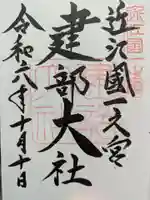 近江國一之宮
建部大社
令和六年十月十日